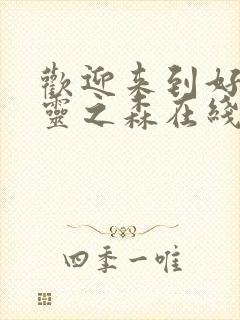 歡迎来到好
靈之森在綫
四季一唯